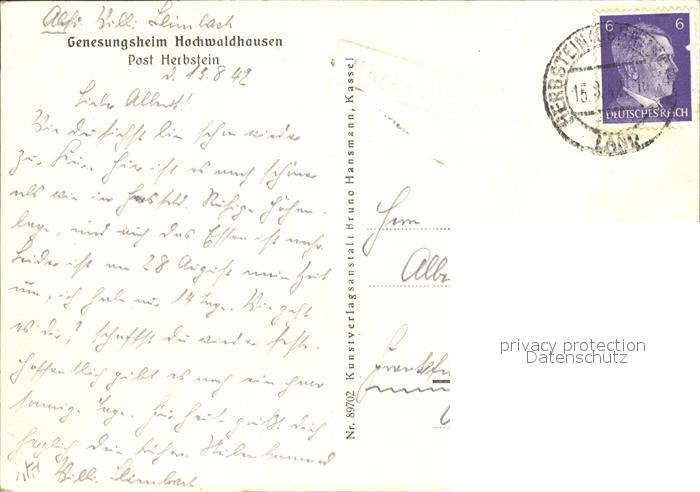 Abs. Willi Leimbach
Genesungsheim Hochwaldhausen
Post Herbstein
d. 15.8.42
Lieber Albert!
Wie du siehst bin schon wieder
zur Kur. Hier ist es noch schöner
als wie in Hersfeld. Ruhige Höhen-
lage, und auch das Essen ist mehr.
Leider ist am 28 August meine Zeit
um, ich habe nur 14 Tage. Wie geht
es dir? schaffst du wieder feste.
Hoffentlich gibt es noch ein paar
sonnige Tage. Für heute grüßt dich
herzlich dein
Willi Leimbach.
Nr. 89702 Kunstverlagsanstalt Bruno Hansmann, Kassel
HERBSTEIN
15.8.42
LAND
6 6
DEUTSCHES REICH
Herrn
Albe
Frankfu
privacy protection
Datenschutz